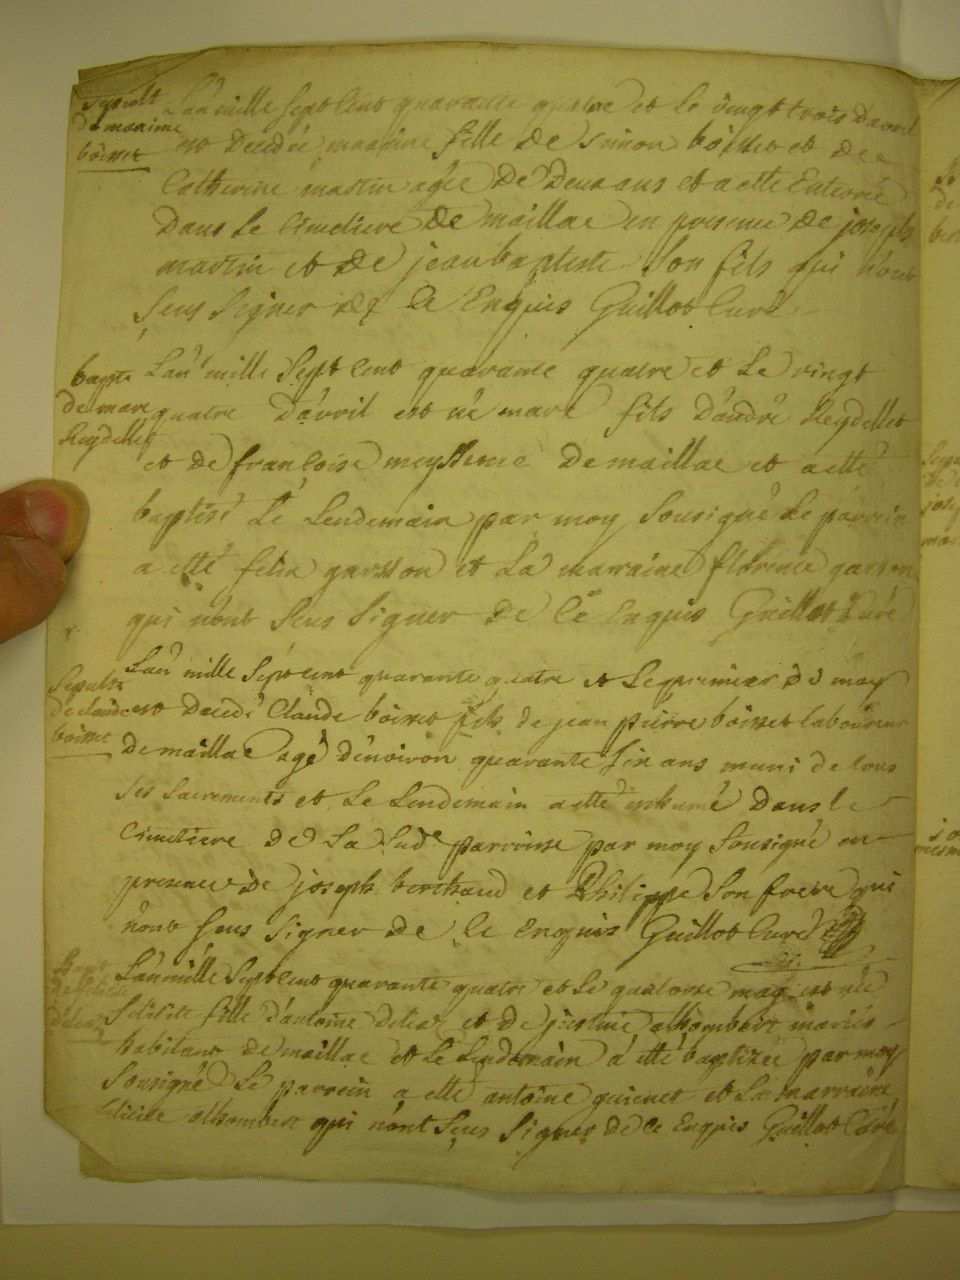 Sepult
de maxime
boisset
L'an mille sept cent quarante quatre et le vingt trois d'avril
est decedée maxime fille de simon boisset et de
Catherine martin agée de deux ans et a etté enterrée
dans le cimetiere de maillac en presence de joseph
martin et de jean baptiste son fils qui n'ont
sçeus signer de ce enquis Guillot Curé
bapte
de marc
Reydellet
L'an mille sept cent quarante quatre et le vingt
quatre d'avril est né marc fils d'andré Reydellet
et de françoise meyssonne de maillac et a etté
baptisé le lendemain par moy sousigné le parrein
a etté felix garsson et la marraine florence garsson
qui n'ont sçeus signer de ce enquis Guillot Curé
Sepulte
de claude
boisset
L'an mille sept cent quarante quatre et le premier de may
est decedé Claude boisset fils de jean pierre boisset laboureur
de maillac agé d'environ quarante six ans muni de tous
ses sacrements et le lendemain a etté inhumé dans le
Cimetiere de la sude parroisse par moy sousigné en
presence de joseph berthaud et Philippe son frere qui
n'ont sçeus signer de ce enquis Guillot Curé
L'an mille sept cent quarante quatre et le quatorse may est née
fille d'antoine et de justine alhombert mariés
habitans de maillac et le lendemain a etté baptisée par moy
sousigné le parrein a etté antoine guienet et la marraine
alhombert qui n'ont sçeus signer de ce enquis Guillot Curé